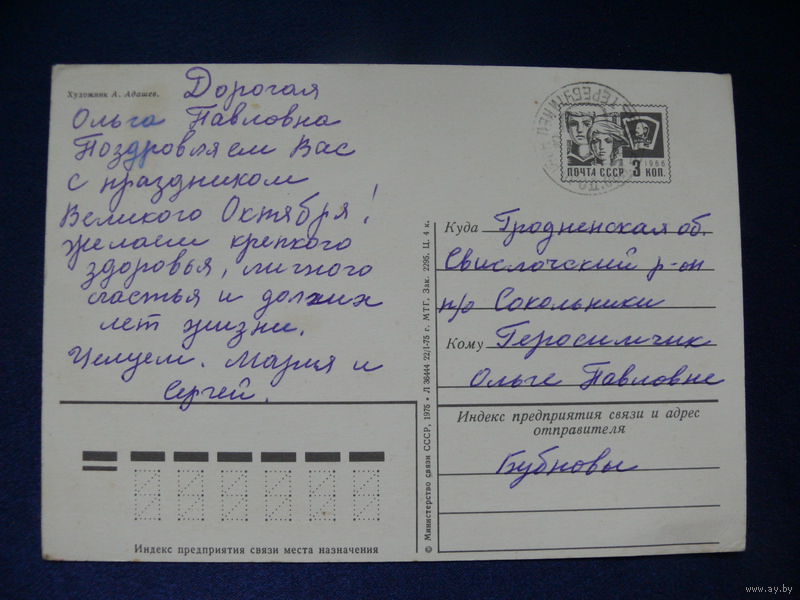 Художник А. Адашев.
Дорогая
Ольга Павловна
Поздровляем Вас
с праздником
Великого Октября!
желаем крепкого
здоровья, личного
счастья и долгих
лет жизни.
Целуем. Мария и
Сергей.
ПОЧТА СССР 3 КОП.
1966
Куда Гродненская об.
Свислочский р-он
п/о Сокольники
Кому Геросимчик
Ольге Павловне
Индекс предприятия связи и адрес
отправителя
Бубновы
Индекс предприятия связи места назначения
© Министерство связи СССР, 1975 • Л 36444 22/I-75 г. МТГ. Зак. 2295. Ц. 4 к.
www.ay.by